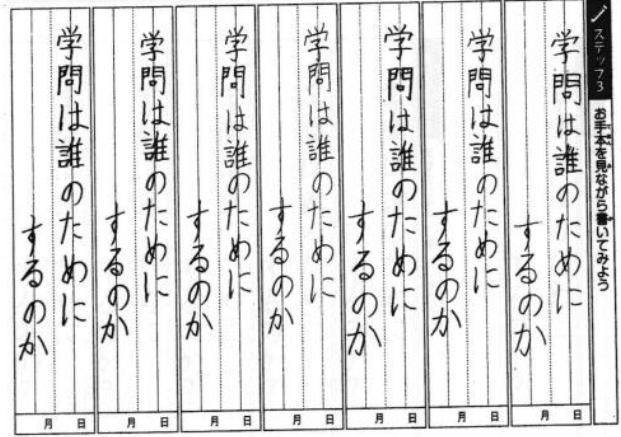 ステップ3 お手本を見ながら書いてみよう
学問は誰のために
するのか
月 日
学問は誰のために
するのか
月 日
学問は誰のために
するのか
月 日
学問は誰のために
するのか
月 日
学問は誰のために
するのか
月 日
学問は誰のために
するのか
月 日
学問は誰のために
するのか
月 日